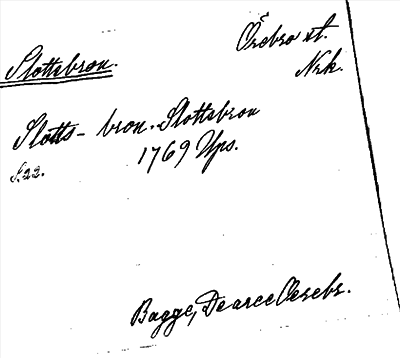 Slottsbron.
Örebro st.
Nrk.
Slotts- bron. Slottsbron
1769 Ups.
S. 22.
Bagge, De arce Oerebr.